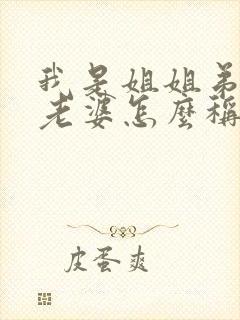 我是姐姐弟
老婆怎麼稱
皮蛋爽